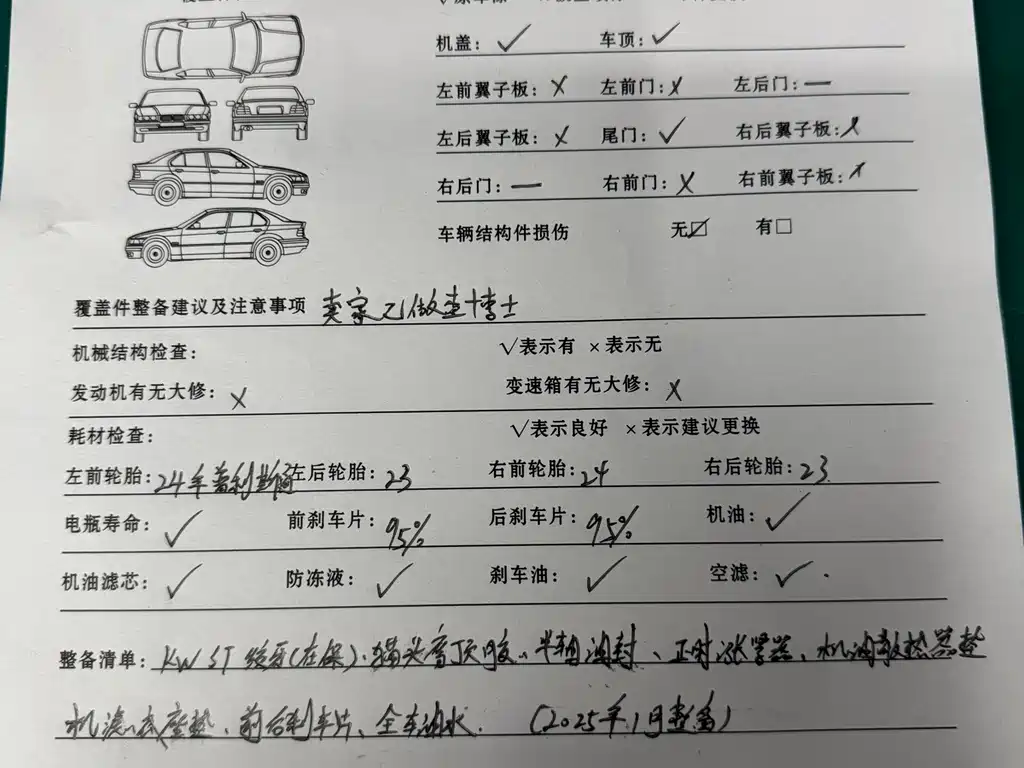 机盖: ✓ 车顶: ✓
左前翼子板: × 左前门: × 左后门: —
左后翼子板: × 尾门: ✓ 右后翼子板: ×
右后门: — 右前门: × 右前翼子板: ×
车辆结构件损伤 无☑ 有□
覆盖件整备建议及注意事项 卖家已做查博士
机械结构检查: √表示有 ×表示无
发动机有无大修: × 变速箱有无大修: ×
耗材检查: √表示良好 ×表示建议更换
左前轮胎: 24年普利斯通 左后轮胎: 23 右前轮胎: 24 右后轮胎: 23
电瓶寿命: ✓ 前刹车片: 95% 后刹车片: 95% 机油: ✓
机油滤芯: ✓ 防冻液: ✓ 刹车油: ✓ 空滤: ✓
整备清单: KW ST 绞牙(在保)、猫头鹰顶胶、半轴油封、正时涨紧器、机油散热器垫
机滤底座垫、前后刹车片、全车油水. (2025年1月整备)